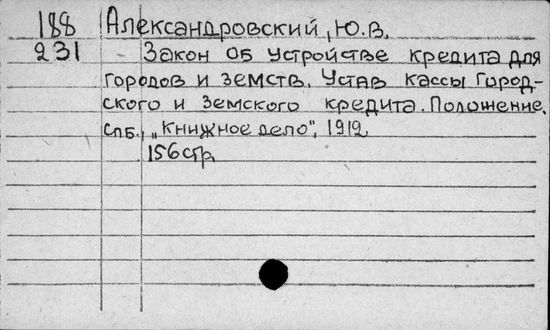 188 Александровский, Ю.В.
231 - Закон об устройстве кредита для
городов и земств. Устав кассы Город-
ского и Земского кредита. Положение.
Спб., „Книжное дело", 1912.
156 стр.